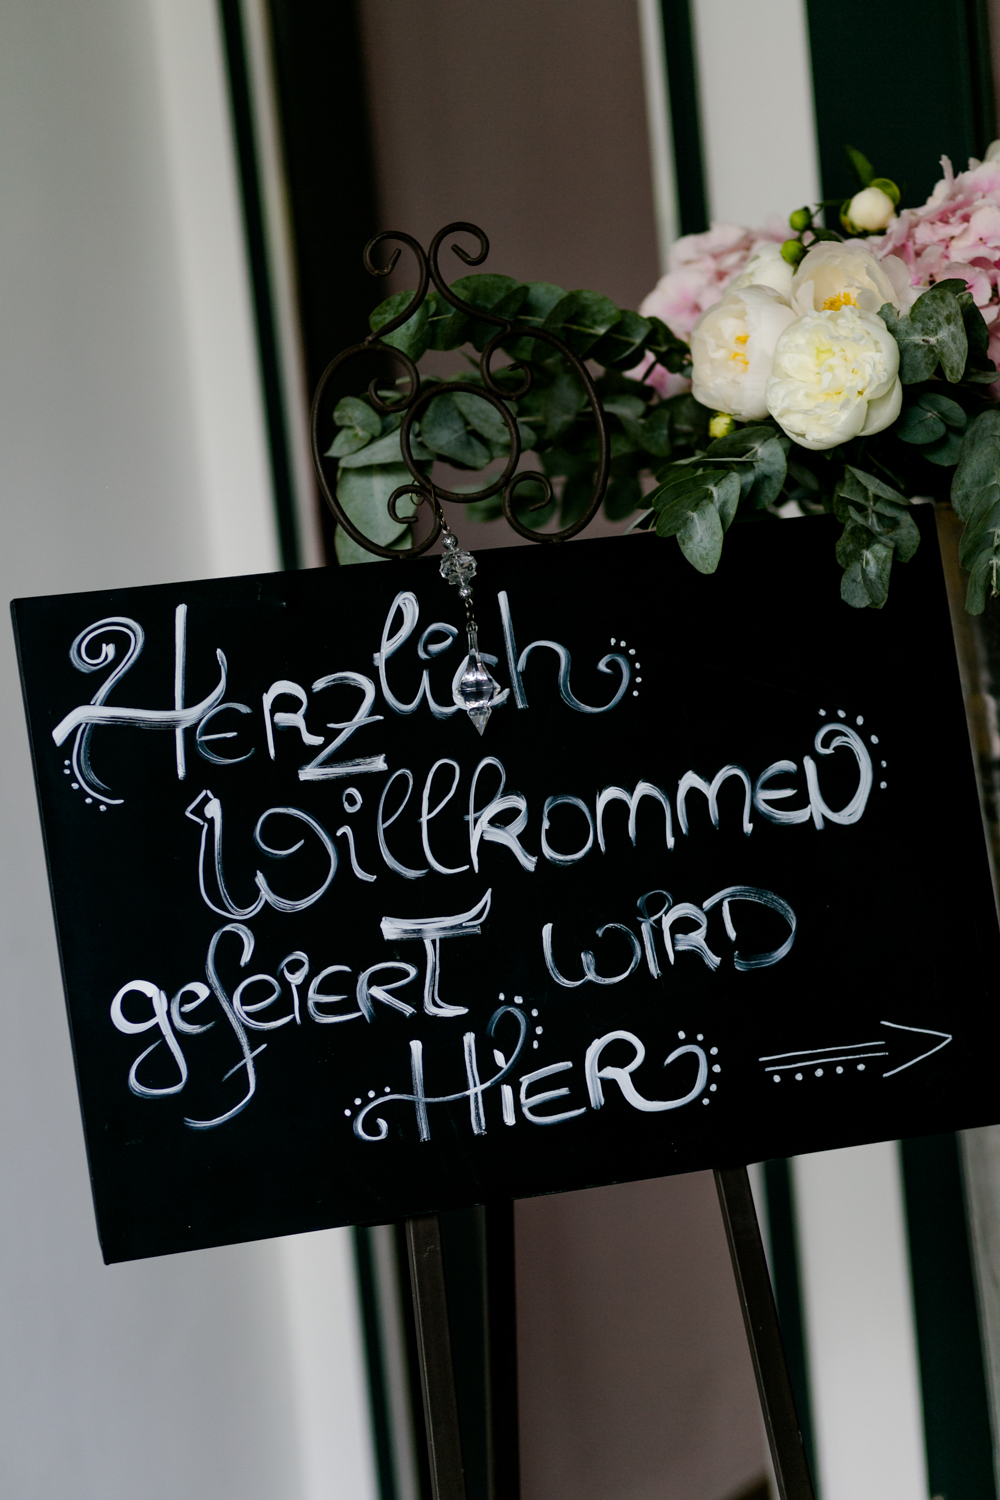 Herzlich
Willkommen
gefeiert wird
Hier